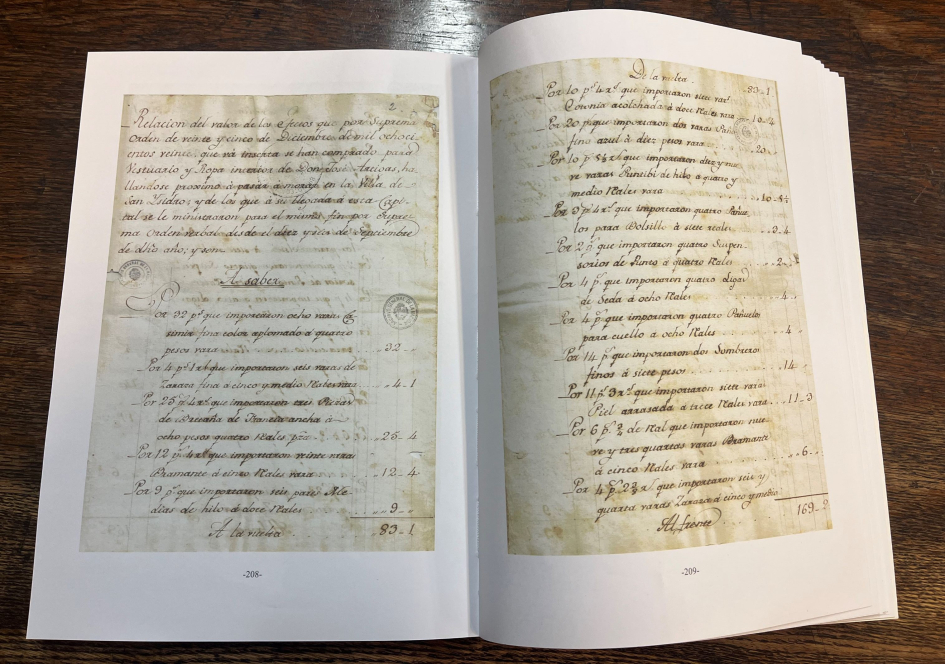 2
Relacion del valor de los efectos que por Suprema
Orden de veinte y cinco de Diciembre de mil ochoci
entos veinte, que vá inserta se han comprado para
Vestuario y Ropa interior de Don José Artigas, ha
llandose proximo á pasar á morar en la Villa de
San Isidro; y de los que á su llegada á esta Capi-
tal se le ministraron para el mismo fin por Supre
ma Orden verbal desde el diez y seis de Septiembre
de dho año; y son
A saber
Por 32 p.s que importaron ocho varas Ca
simir fina color aplomado á quatro
pesos vara 32
Por 4 p.s 1 r.l que importaron seis varas de
Zaraza fina á cinco y medio Reales vara 4-1
Por 25 p.s 4 r.s que importaron tres Piezas
de Bretaña de Francia ancha á
ocho pesos quatro Reales pza 25-4
Por 12 p.s 4 r.s que importaron veinte varas
Bramante á cinco Reales vara 12-4
Por 9 p.s que importaron seis pares Me
dias de hilo á doce Reales 9
A la vuelta 83-1
-208-
De la vuelta 83-1
Por 10 p.s 4 r.s que importaron siete var.s
Cotonia acolchada á doce Reales vara 10-4
Por 20 p.s que importaron dos varas Paño
fino azul á diez pesos vara 20
Por 10 p.s 5½ r.s que importaron diez y nue
ve varas de hilo á quatro y
medio Reales vara 10-5½
Por 3 p.s 4 r.s que importaron quatro Pañue
los para Bolsillo á siete reales 3-4
Por 2 p.s que importaron quatro Suspen
sorios de Punto á quatro Reales 2
Por 4 p.s que importaron quatro Ligas
de Seda á ocho Reales 4
Por 4 p.s que importaron quatro Pañuelos
para cuello á ocho Reales 4
Por 14 p.s que importaron dos Sombreros
finos á siete pesos 14
Por 11 p.s 3 r.s que importaron siete varas
Piel arrasada á trece Reales vara 11-3
Por 6 p.s ¾ de Real que importaron nue
ve y tres quartas varas Bramante
á cinco Reales vara 6
Por 4 p.s que importaron seis y
quarta varas Zaraza á cinco y medio
Al frente 169
-209-